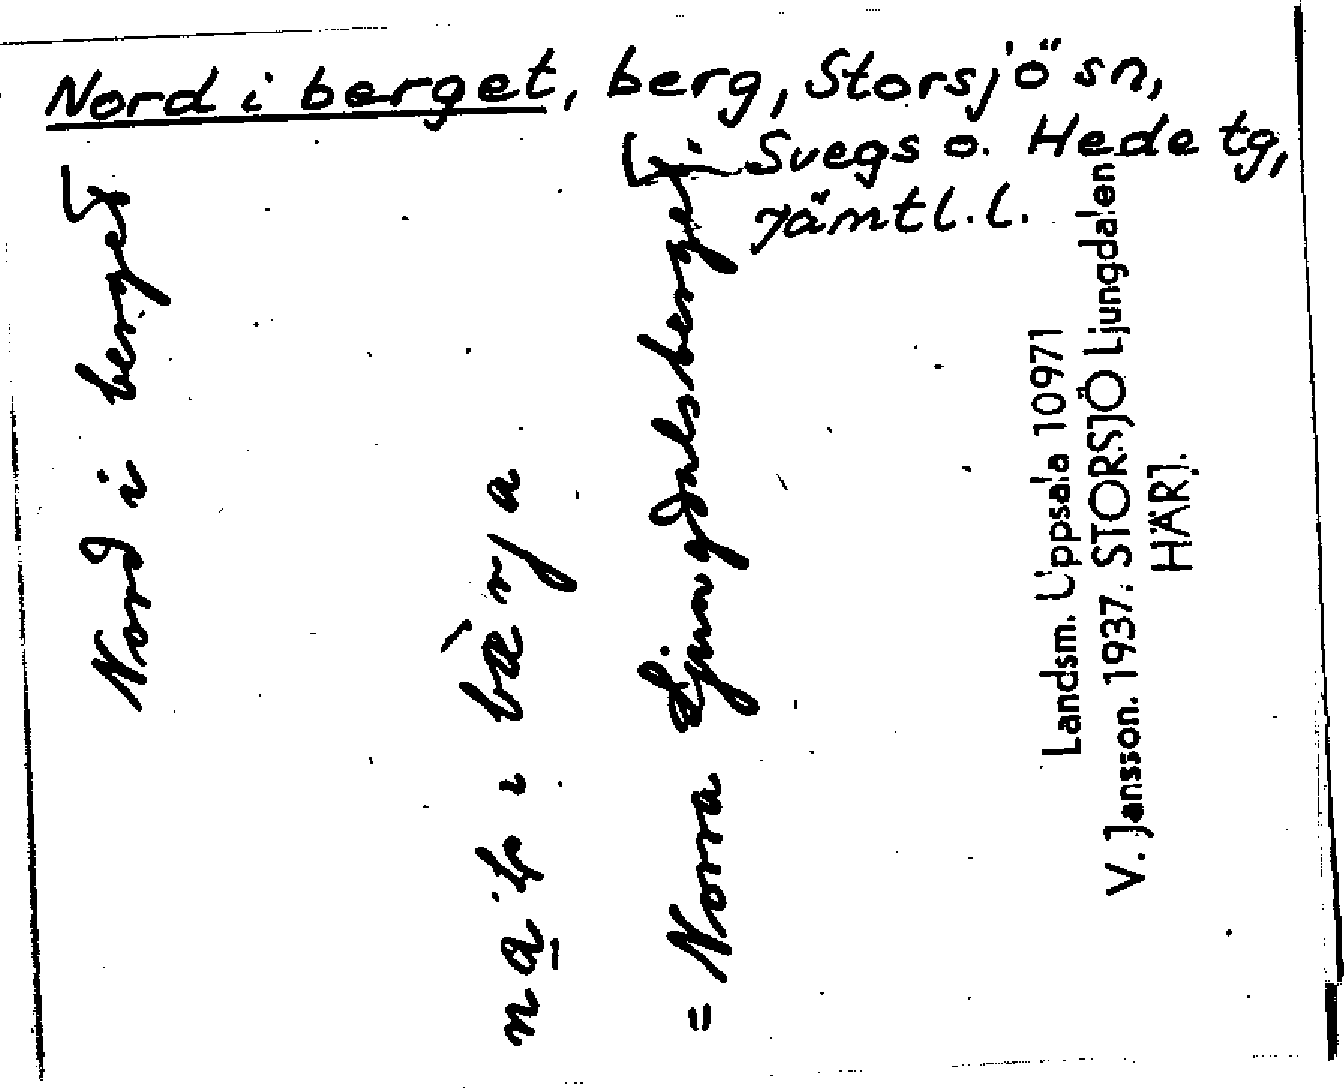 Nord i berget, berg, Storsjö sn,
Svegs o. Hede tg,
Jämtl. l.
Nord i berget
i bàrja
= Norra Ljungdalsberget.
Landsm. Uppsala 10971
V. Jansson. 1937. STORSJÖ Ljungdalen
HÄRJ.